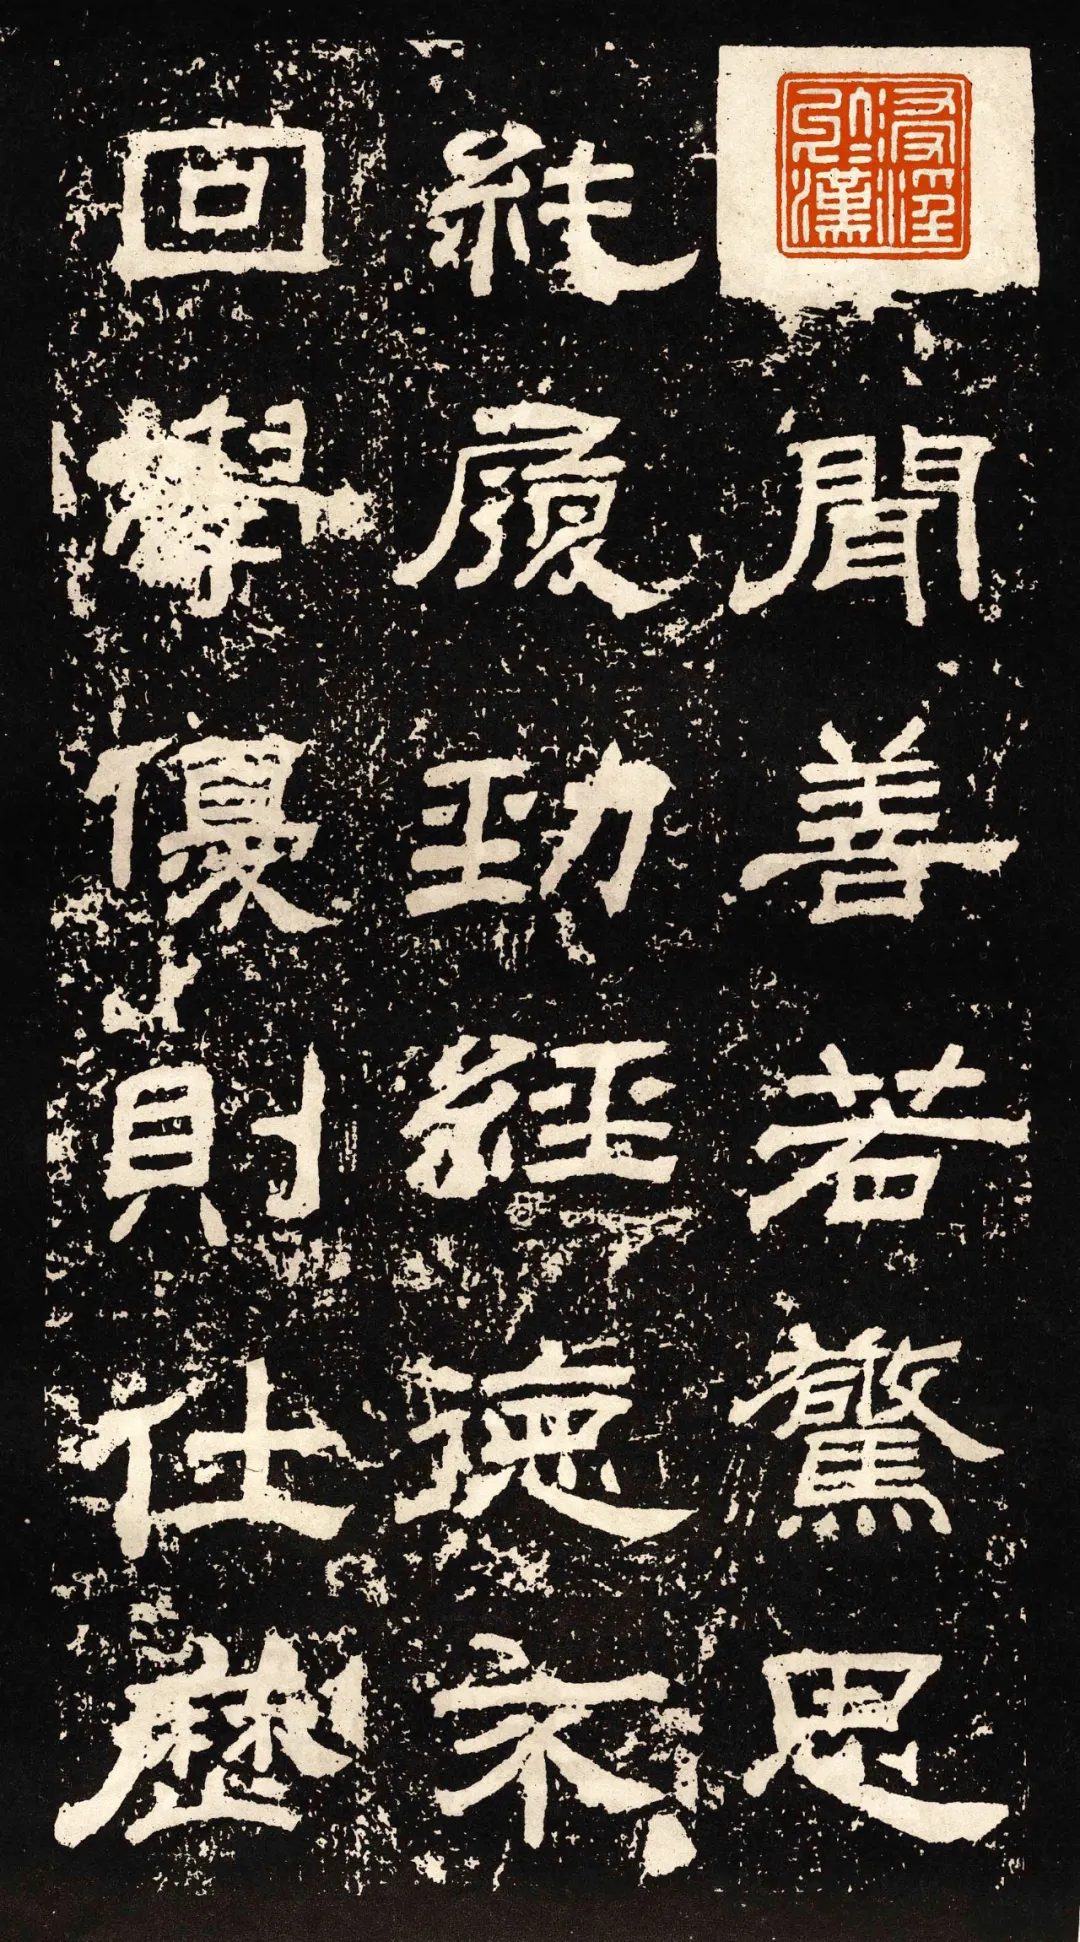 聞善若驚思
純履勁經德不
回學優則仕歷